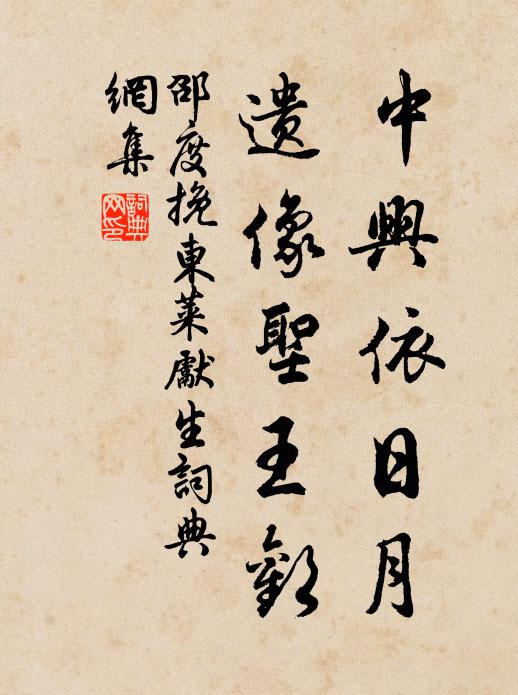 中興依日月
遺像聖王勸
邵度挽東萊獻生詞典
網集
詞典
网印